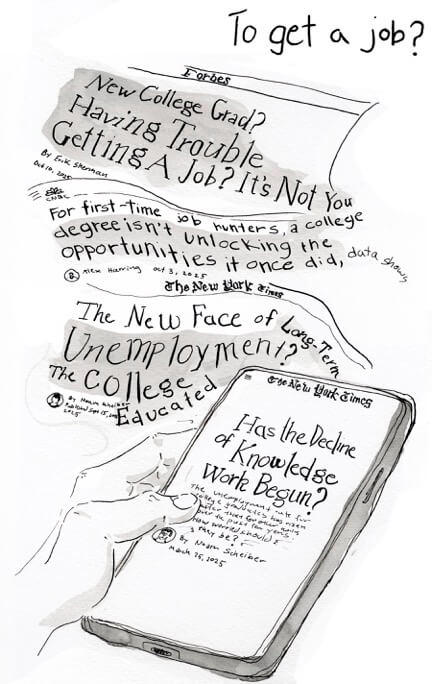 To get a job?
Forbes
New College Grad?
Having Trouble
Getting A Job? It's Not You
By Erik Sherman
Oct 10, 2025
CNBC
For first-time job hunters, a college
degree isn't unlocking the
opportunities it once did, data shows
Alex Harring Oct 3, 2025
The New York Times
The New Face of Long-Term
Unemployment?
The College
Educated
By Noam Scheiber
Published Sept 15,
2025
The New York Times
Has the Decline
of Knowledge
Work Begun?
The unemployment rate for
college graduates has risen
faster than for other workers
over the past few years.
How worried should
they be?
By Noam Scheiber
March 25, 2025